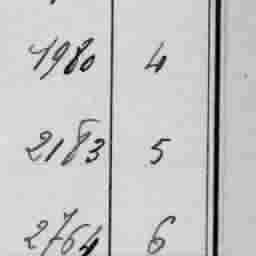 1980 4
2183 5
2764 6